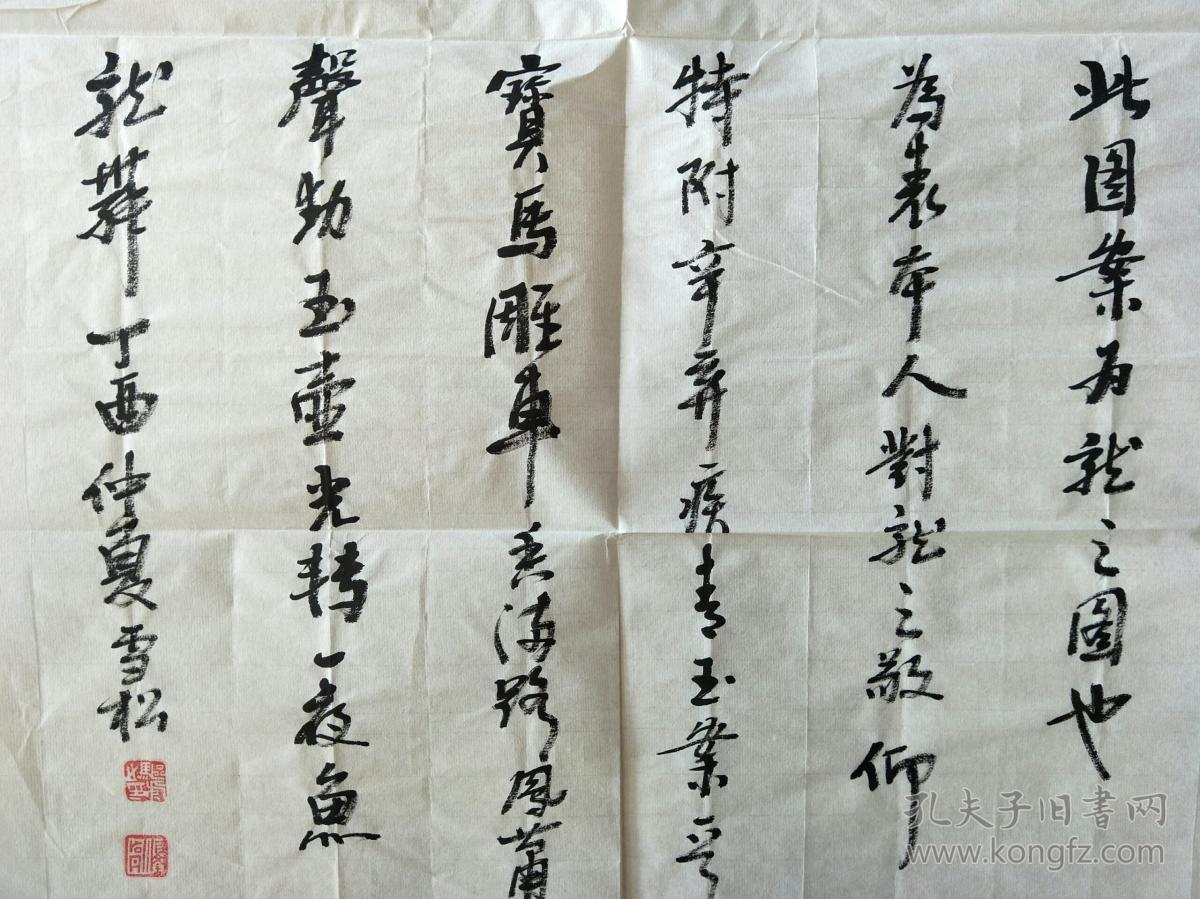 此图案为龍之圖也
為表本人對龍之敬仰
特附辛弃疾青玉案
寶馬雕車香滿路鳳萧
聲動玉壺光转一夜魚
龍舞 丁酉仲夏雪松
孔夫子旧書网
www.kongfz.com